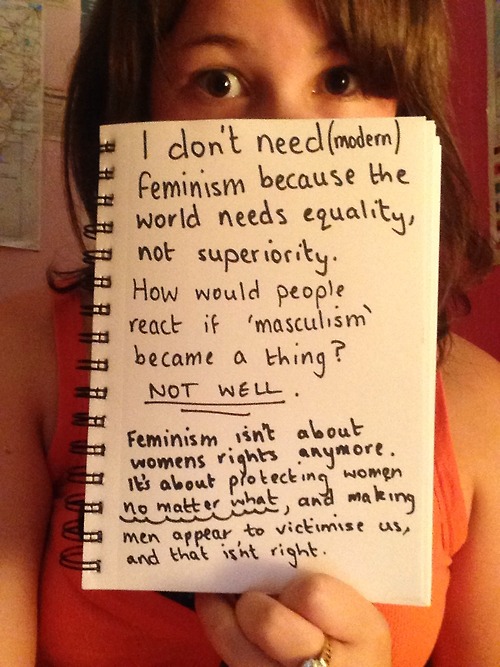 I don't need (modern)
feminism because the
world needs equality,
not superiority.
How would people
react if 'masculism'
became a thing?
NOT WELL.
Feminism isn't about
womens rights anymore.
It's about protecting women
no matter what, and making
men appear to victimise us,
and that isn't right.